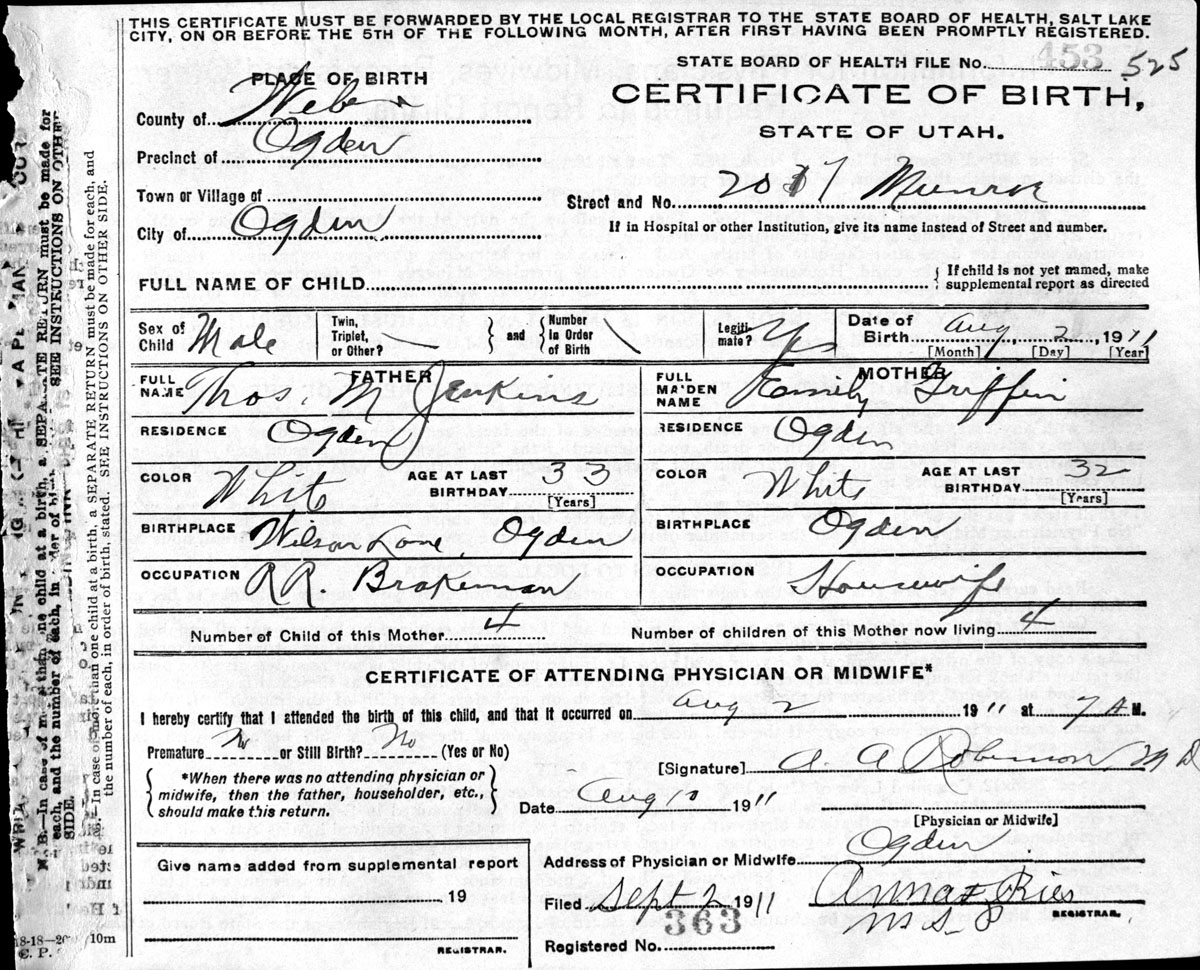 THIS CERTIFICATE MUST BE FORWARDED BY THE LOCAL REGISTRAR TO THE STATE BOARD OF HEALTH, SALT LAKE
CITY, ON OR BEFORE THE 5TH OF THE FOLLOWING MONTH, AFTER FIRST HAVING BEEN PROMPTLY REGISTERED.
STATE BOARD OF HEALTH FILE No. 453 525
PLACE OF BIRTH
CERTIFICATE OF BIRTH,
STATE OF UTAH.
County of Weber
Precinct of Ogden
Town or Village of
Street and No. 2017 Munroe
City of Ogden
If in Hospital or other Institution, give its name instead of Street and number.
FULL NAME OF CHILD
If child is not yet named, make
supplemental report as directed
Sex of Child Male
Twin, Triplet, or Other?
and
Number In Order of Birth
Legitimate? Yes
Date of Birth Aug, 2, 1911
[Month] [Day] [Year]
FATHER
FULL NAME Thos. M Jenkins
RESIDENCE Ogden
COLOR White
AGE AT LAST BIRTHDAY 33
[Years]
BIRTHPLACE Wilson Lane, Ogden
OCCUPATION RR Brakeman
MOTHER
FULL MAIDEN NAME Emily Griffin
RESIDENCE Ogden
COLOR White
AGE AT LAST BIRTHDAY 32
[Years]
BIRTHPLACE Ogden
OCCUPATION Housewife
Number of Child of this Mother 4
Number of children of this Mother now living 4
CERTIFICATE OF ATTENDING PHYSICIAN OR MIDWIFE*
I hereby certify that I attended the birth of this child, and that it occurred on Aug 2 1911 at 7 A M.
Premature No or Still Birth? No (Yes or No)
*When there was no attending physician or
midwife, then the father, householder, etc.,
should make this return.
[Signature] A. A Robinson MD
Date Aug 10 1911
[Physician or Midwife]
Give name added from supplemental report
19
REGISTRAR.
Address of Physician or Midwife Ogden
Filed Sept 2 1911
REGISTRAR.
363
Registered No.
N. B.—In case of more than one child at a birth, a SEPARATE RETURN must be made for
each, and the number of each, in order of birth
SEE INSTRUCTIONS ON OTHER
SIDE.
N. B.—In case of more than one child at a birth, a SEPARATE RETURN must be made for each, and
the number of each, in order of birth, stated. SEE INSTRUCTIONS ON OTHER SIDE.
10m
C. P.